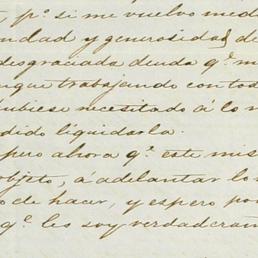 , p.º si me vuelvo med
ndad y generosidad de
desgraciada deuda q.e m
nque trabajando con tod
ubiese necesitado á lo m
dido liquidarla.
pero ahora q.e este mis
objeto, á adelantar lo
o de hacer, y espero po
q.e les soy verdaderam